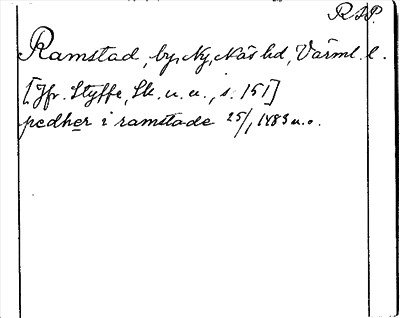 RAP
Ramstad, by, Ny, Näs hd, Värml. l.
[Jfr. Styffe, Sk. u. u., s. 151]
pedher i ramstade 25/1 1483 u. o.